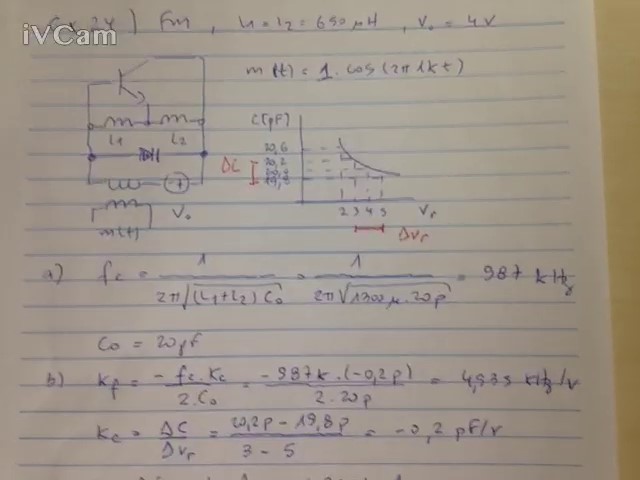 iVCam
Ex. 24) FM, L1 = L2 = 650 μH, V₀ = 4V
m(t) = 1. cos(2π1kt)
C[pF]
L1 L2
20,6
20,2
ΔC
19,8
2 3 4 5 Vr
V₀
m(t)
ΔVr
a) fc = 1 / 2π√(L1+L2) C₀ = 1 / 2π√1300μ.20p = 987 kHz
C₀ = 20pF
b) Kf = -fc.Kc / 2.C₀ = -987k.(-0,2p) / 2.20p = 4,935 kHz/V
Kc = ΔC / ΔVr = 20,2p - 19,8p / 3 - 5 = -0,2 pF/V